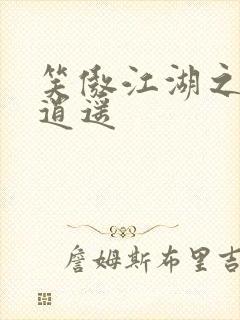 笑傲江湖之
逍遥
詹姆斯布里吉